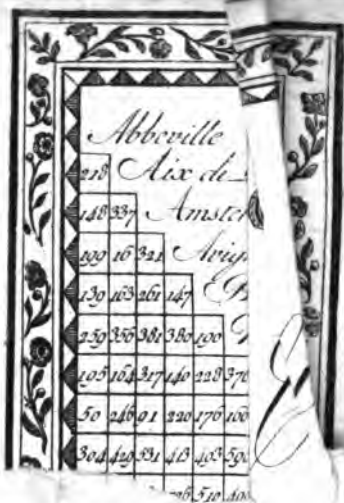 Abbeville
218 Aix de
148 337 Amster
199 16 321 Avig
139 163 261 147
259 356 381 380 190
195 164 317 140 228 376
50 246 91 220 176 160
304 429 531 413 493 590
510